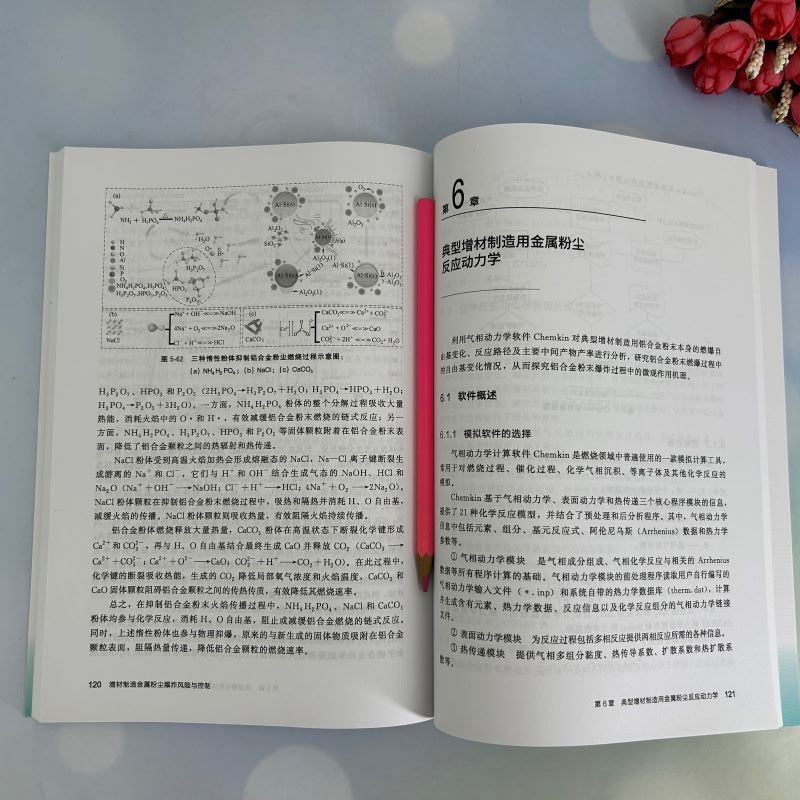 (a)
NH₃ + H₃PO₄ NH₄H₂PO₄
H
N
O
Al
Si
P
O₂
NH₄H₂PO₄,H₃PO₄,
H₄P₂O₇,HPO₃,P₂O₅
H₂O
O·
H·
H₄P₂O₇
HPO₃
P₂O₅
Al-Si(s)
O₂
Al-Si(s)
Al₂O₃
SiO₂
Al-Si(s)
Al₂O₃(l)
Al-Si(s)
Al-Si(l)
Al-Si(s)
Al₂O₃(l)
Al₂O₃
(b)
NaCl
Na⁺ + OH⁻<=>NaOH
4Na⁺ + O₂<=>2Na₂O
Cl⁻ + H⁺<=>HCl
(c)
CaCO₃
CaCO₃<=>Ca²⁺ + CO₃²⁻
Ca²⁺ + O²⁻<=>CaO
CO₃²⁻ + 2H⁺<=>CO₂+ H₂O
图 5-62 三种惰性粉体抑制铝合金粉尘燃烧过程示意图：
(a) NH₄H₂PO₄；(b) NaCl；(c) CaCO₃
H₄P₂O₇、HPO₃ 和 P₂O₅（2H₃PO₄→H₄P₂O₇+H₂O；H₃PO₄→HPO₃+H₂O；
H₃PO₄→P₂O₅+3H₂O）。一方面，NH₄H₂PO₄ 粉体的整个分解过程吸收大量
热能，消耗火焰中的 O·和 H·，有效减缓铝合金粉末燃烧的链式反应；另一
方面，NH₄H₂PO₄、H₄P₂O₇、HPO₃ 和 P₂O₅ 等固体颗粒附着在铝合金粉末表
面，降低了铝合金颗粒之间的热辐射和热传递。
NaCl 粉体受到高温火焰加热会形成熔融态的 NaCl，Na—Cl 离子键断裂生
成游离的 Na⁺ 和 Cl⁻，它们与 H⁺ 和 OH⁻ 结合生成气态的 NaOH、HCl 和
Na₂O（Na⁺+OH⁻→NaOH；Cl⁻+H⁺→HCl；4Na⁺+O₂→2Na₂O）。
NaCl 粉体颗粒在抑制铝合金粉末燃烧过程中，吸热和隔热并消耗 H、O 自由基，
减缓火焰的传播。NaCl 粉体颗粒则吸收热量，有效阻隔火焰持续传播。
铝合金粉体燃烧释放大量热量，CaCO₃ 粉体在高温状态下断裂化学键形成
Ca²⁺ 和 CO₃²⁻，再与 H、O 自由基结合最终生成 CaO 并释放 CO₂（CaCO₃→
Ca²⁺+CO₃²⁻；Ca²⁺+O²⁻→CaO；CO₃²⁻+H⁺→CO₂+H₂O）。在此过程中，
化学键的断裂吸收热能，生成的 CO₂ 降低局部氧气浓度和火焰温度，CaCO₃ 和
CaO 固体颗粒阻隔铝合金颗粒之间的传热传质，有效降低其燃烧速率。
总之，在抑制铝合金粉末火焰传播过程中，NH₄H₂PO₄、NaCl 和 CaCO₃
粉体均参与化学反应，消耗 H、O 自由基，阻止或减缓铝合金燃烧的链式反应。
同时，上述惰性粉体也参与物理抑爆，原来的与新生成的固体物质吸附在铝合金
颗粒表面，阻隔热量传递，降低铝合金颗粒的燃烧速率。
120 增材制造金属粉尘爆炸风险与控制
第 6 章
典型增材制造用金属粉尘
反应动力学
利用气相动力学软件 Chemkin 对典型增材制造用铝合金粉末本身的燃爆自
由基变化、反应路径及主要中间产物产率进行分析，研究铝合金粉末燃爆过程中
的自由基变化情况，从而探究铝合金粉末爆炸过程中的微观作用机理。
6.1 软件概述
6.1.1 模拟软件的选择
气相动力学计算软件 Chemkin 是燃烧领域中普遍使用的一款模拟计算工具，
常用于对燃烧过程、催化过程、化学气相沉积、等离子体及其他化学反应的
模拟。
Chemkin 基于气相动力学、表面动力学和热传递三个核心程序模块的信息，
提供了 21 种化学反应模型，并结合了预处理和后分析程序。其中，气相动力学
信息中包括元素、组分、基元反应式、阿伦尼乌斯（Arrhenius）数据和热力学
参数等。
① 气相动力学模块 是气相成分组成、气相化学反应与相关的 Arrhenius
数据等所有程序计算的基础。气相动力学模块的前处理程序读取用户自行编写的
气相动力学输入文件（*.inp）和系统自带的热力学数据库（therm.dat），计算
并生成含有元素、热力学数据、反应信息以及化学反应组分的气相动力学链接
文件。
② 表面动力学模块 为反应过程包括多相反应提供两相反应所需的各种信息。
③ 热传递模块 提供气相多组分黏度、热传导系数、扩散系数和热扩散系
数等。
第 6 章 典型增材制造用金属粉尘反应动力学 121